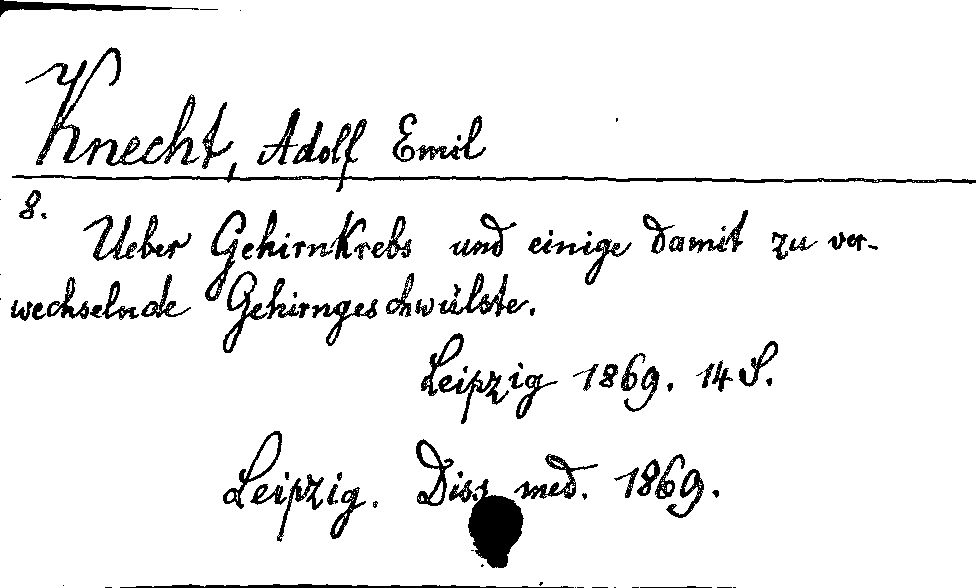 Knecht, Adolf Emil
8.
Ueber Gehirnkrebs und einige damit zu ver-
wechselnde Gehirngeschwülste.
Leipzig 1869. 14 S.
Leipzig. Diss. med. 1869.